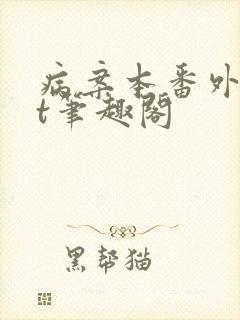 病案本番外
t笔趣阁
黑帮猫